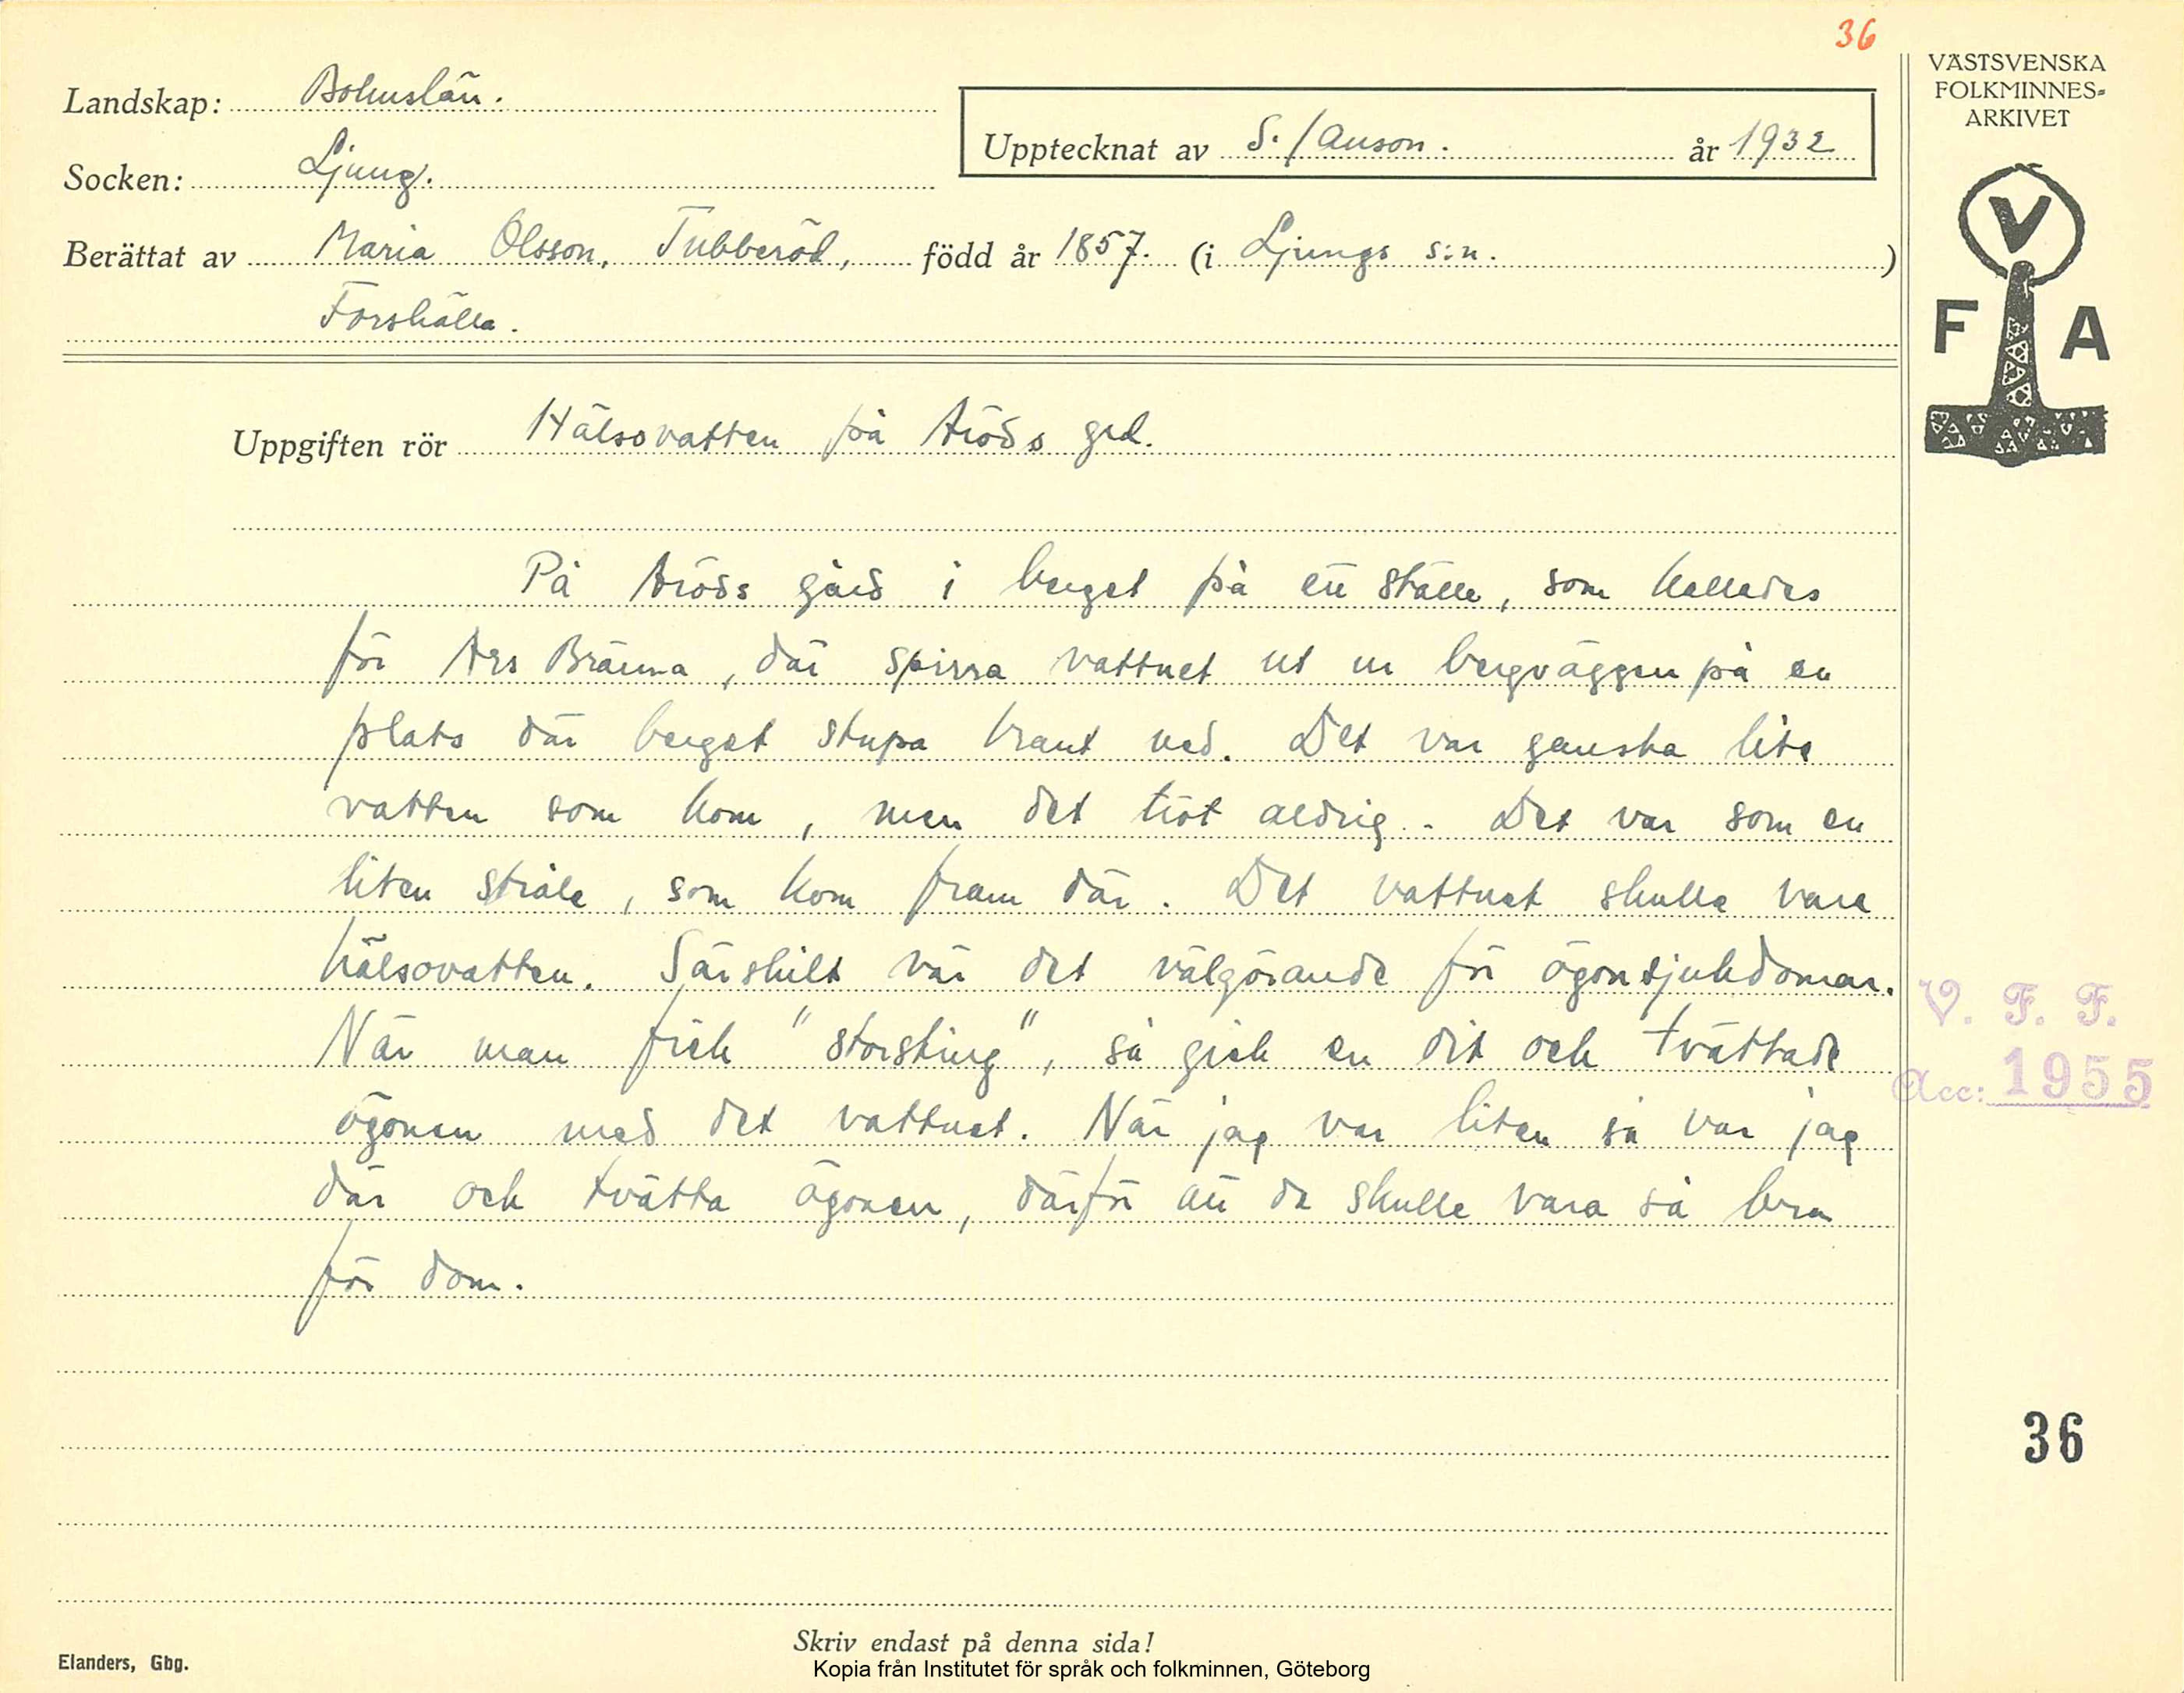 36
VÄSTSVENSKA
FOLKMINNES-
ARKIVET
Landskap: Bohuslän.
Upptecknat av S. Janson. år 1932
Socken: Ljung.
Berättat av Maria Olsson, Tubberöd, född år 1857. (i Ljungs s:n.)
Forshälla.
V
F A
Uppgiften rör Hälsovatten på Aröds grd.
På Aröds gård i berget på ett ställe, som kallades
för Ars Bränna, där spirra vattnet ut ur bergväggen på en
plats där berget stupa brant ned. Det var ganska lite
vatten som kom, men det tröt aldrig. Det var som en
liten stråle, som kom fram där. Det vattnet skulle vara
hälsovatten. Särskilt var det välgörande för ögonsjukdomar.
När man fick "storsting", så gick en dit och tvättade
ögonen med det vattnet. När jag var liten så var jag
där och tvätta ögonen, därför att de skulle vara så bra
för dom.
V. F. F.
Acc: 1955
36
Skriv endast på denna sida!
Elanders, Gbg.
Kopia från Institutet för språk och folkminnen, Göteborg